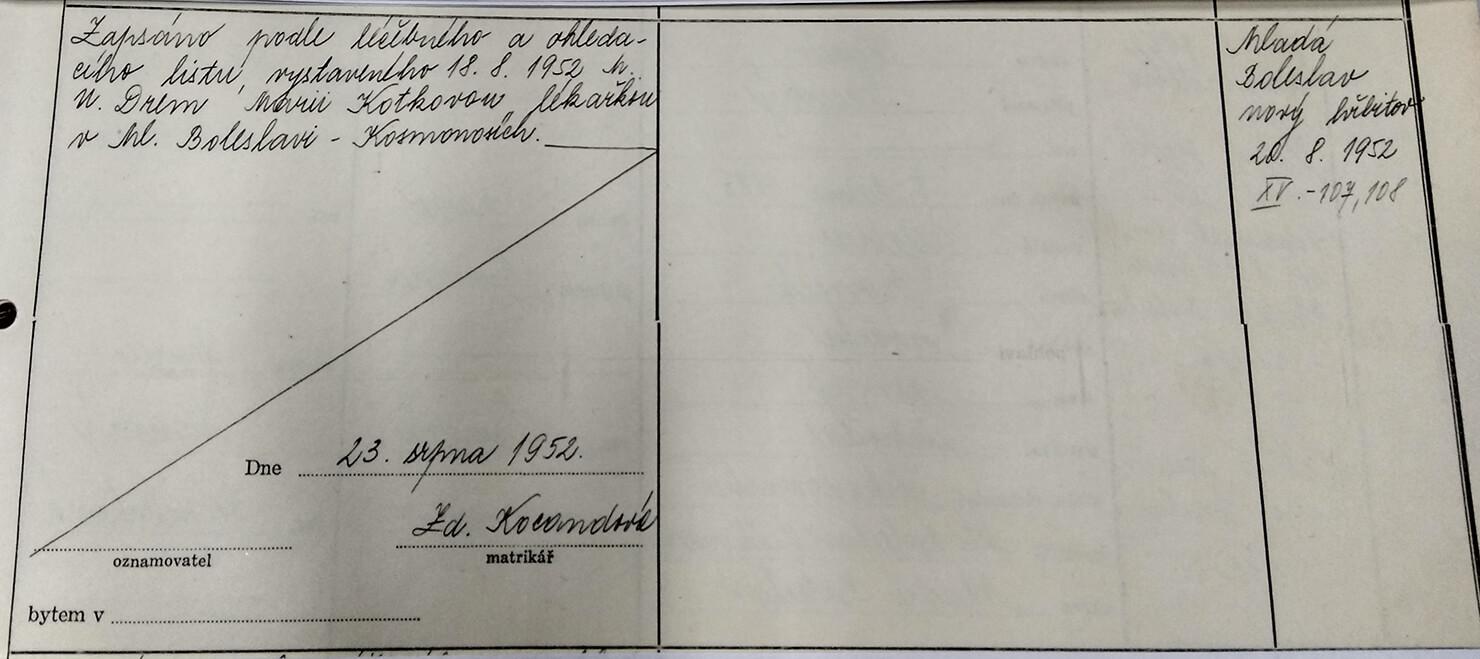 Zapsáno podle léčebného a ohleda-
cího listu, vystaveného 18. 8. 1952 M.
U. Drem Marií Kotkovou, lékařkou
v Ml. Boleslavi - Kosmonosích.
Dne 23. srpna 1952.
Zd. Kocandová
oznamovatel
matrikář
bytem v
Mladá
Boleslav
nový hřbitov
20. 8. 1952
XV. - 107, 108